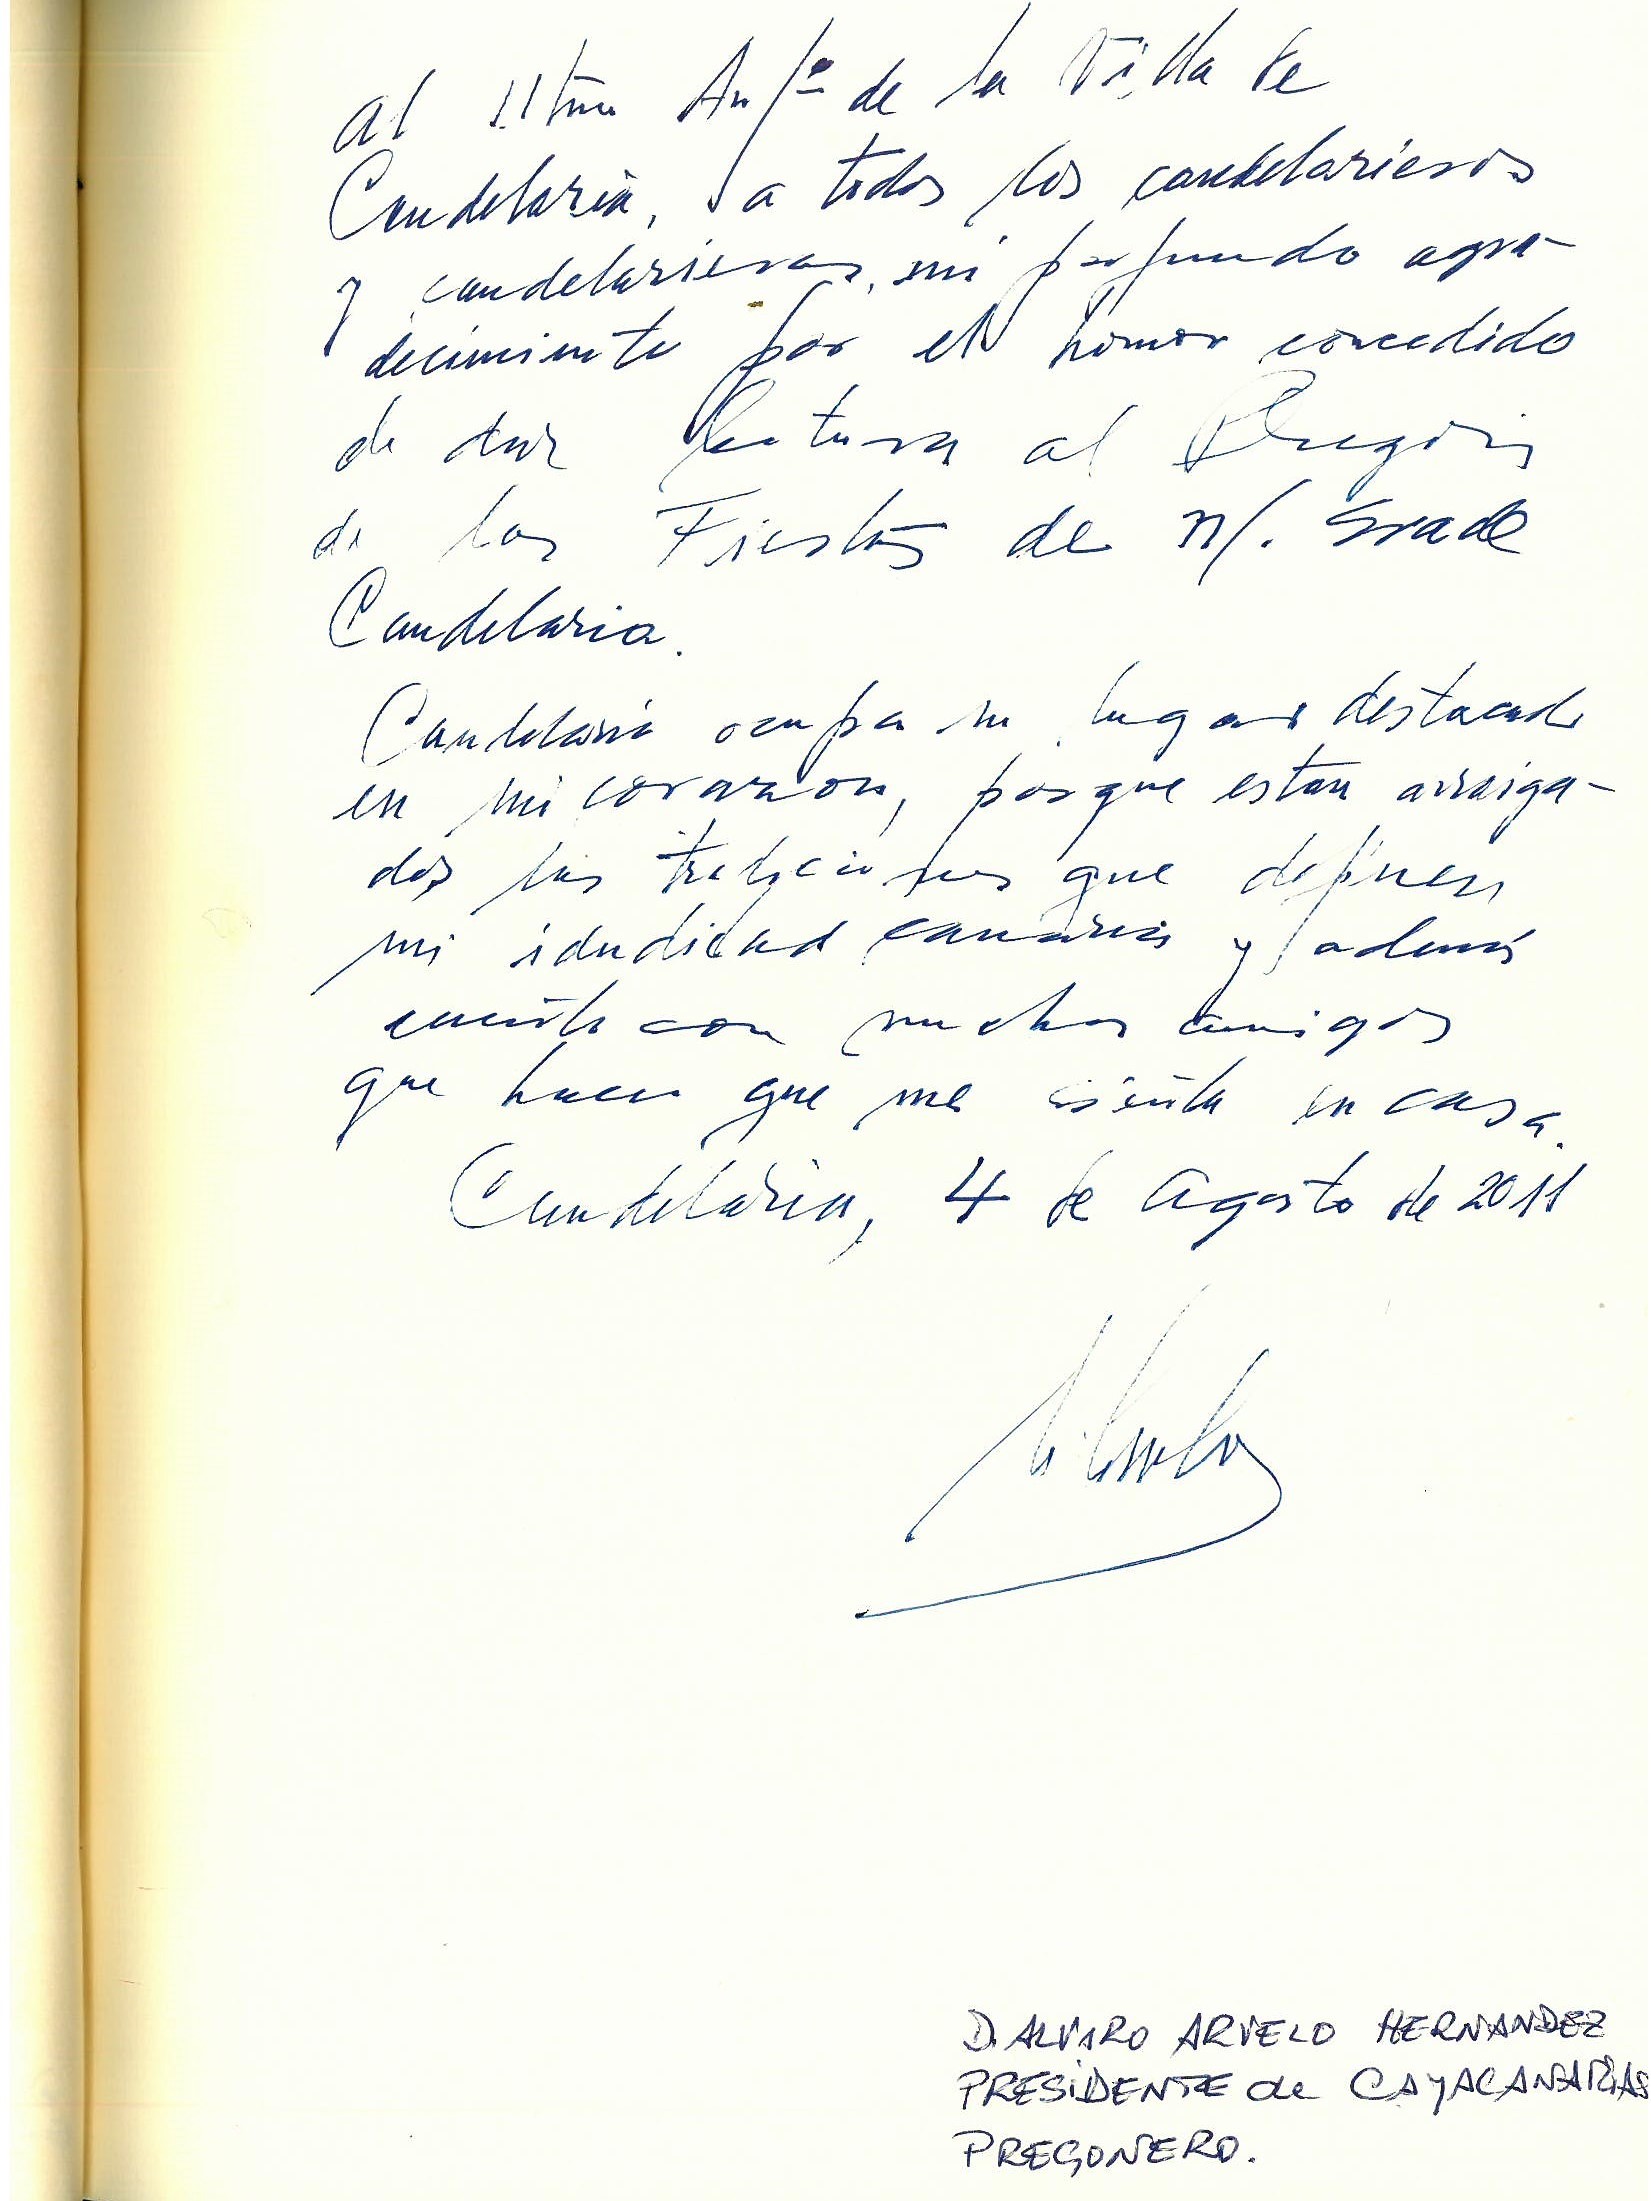 Al Iltmo Aytº de la Villa de
Candelaria, a todos los candelarieros
y candelarieras, mi profundo agra-
decimiento por el honor concedido
de dar lectura al Pregón
de las Fiestas de N/. Sra de
Candelaria.
Candelaria ocupa un lugar destacado
en mi corazon, porque estan arraiga-
dos las tradiciones que definen
mi identidad canaria y además
cuento con muchos amigos
que hacen que me sienta en casa.
Candelaria, 4 de Agosto de 2011
D. ALVARO ARVELO HERNANDEZ
PRESIDENTE de CAJACANARIAS
PREGONERO.